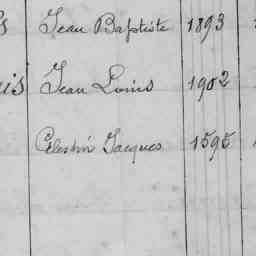 Jean Baptiste 1893
Jean Louis 1902
Célestin Jacques 1895